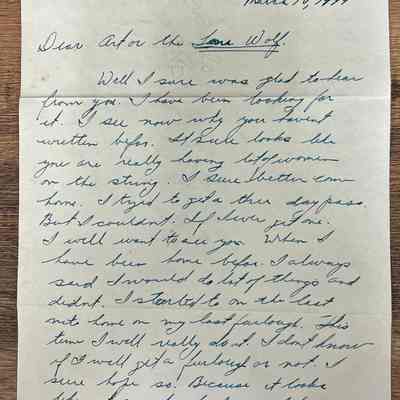 March 10, 1944
Dear Art or the Lone Wolf.
Well I sure was glad to hear
from you. I have been looking for
it. I see now why you havent
wretten befor. It sure looks like
you are really having lot of women
on the string. I sure better come
home. I tryed to get a three day pass.
But I couldnt. If I ever get one.
I will want to see you. When I
have been home befor. I always
said I would do lot of things and
didnt. I started to on the last
nite home on my last furlough. This
time I will really do it. I don't know
if I will get a furlough or not. I
sure hope so. Because it looks